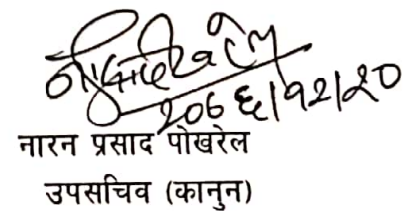 २०७६/१२/२०
नारन प्रसाद पोखरेल
उपसचिव (कानुन)